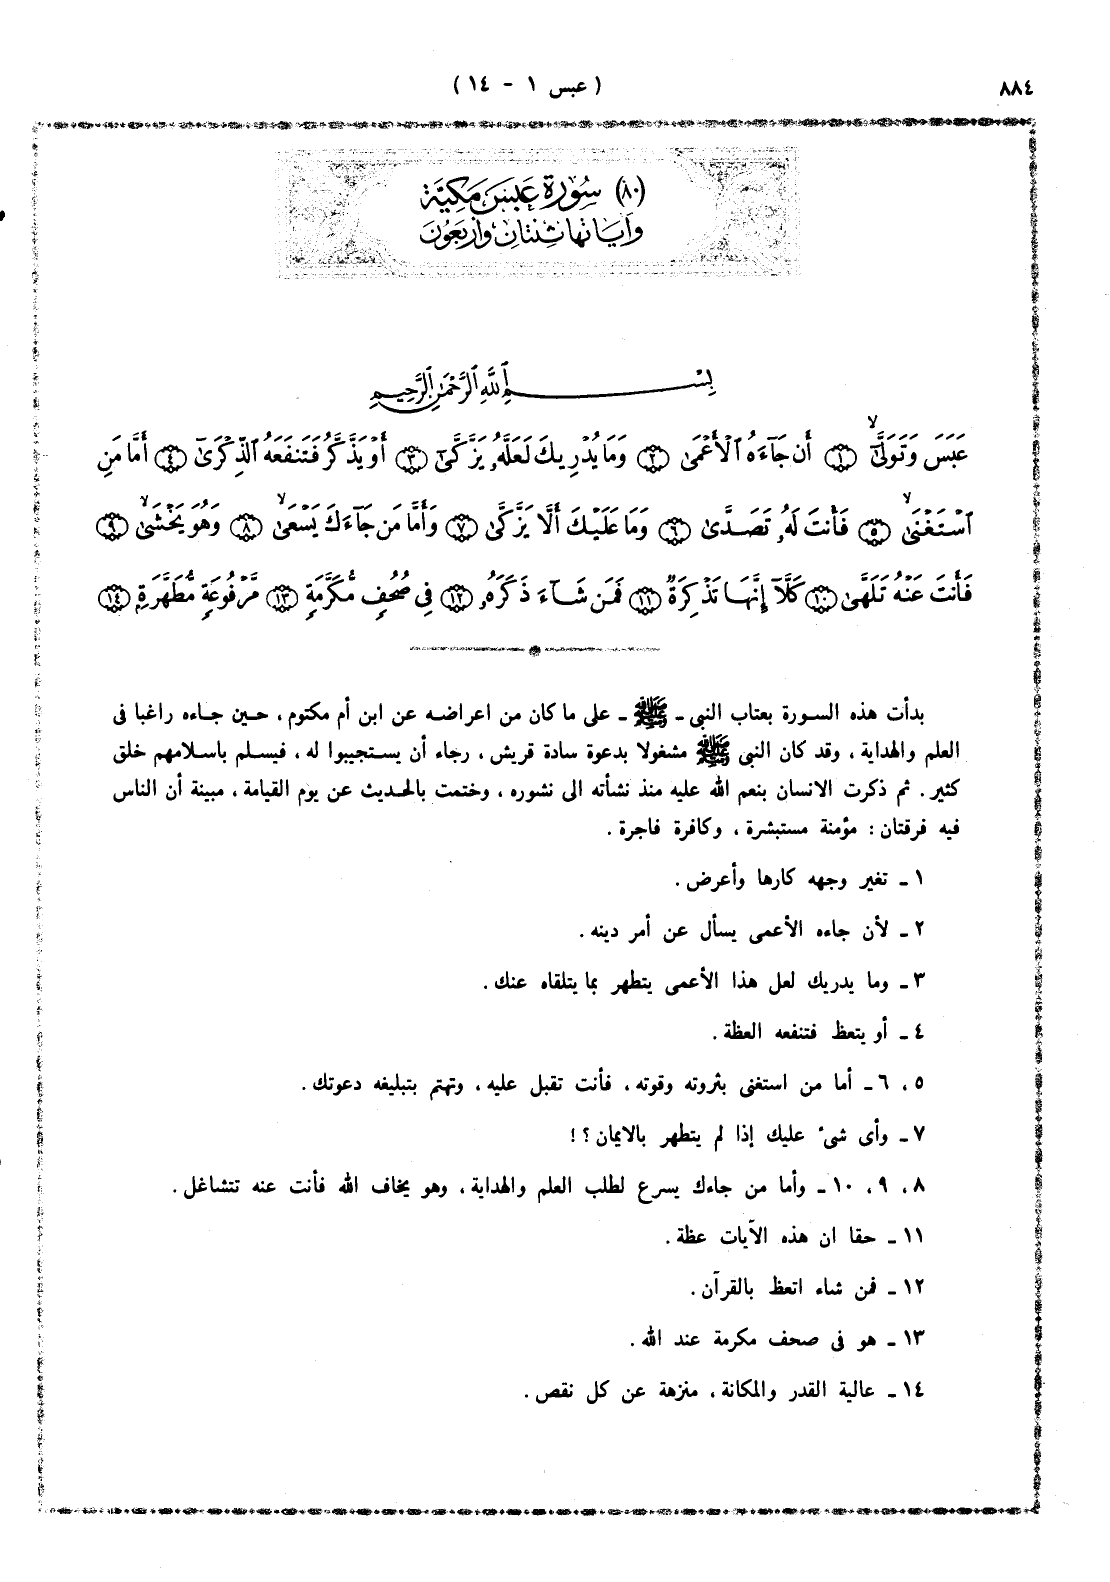 ٨٨٤
( عبس ١ - ١٤ )
(٨٠) سُورَة عَبَسَ مَكِيَّة
وَآيَاتُهَا ثِنْتَانِ وَأَرْبَعُونَ
بِسْمِ ٱللَّهِ ٱلرَّحْمَٰنِ ٱلرَّحِيمِ
عَبَسَ وَتَوَلَّىٰٓ ۙ ﴿١﴾ أَن جَآءَهُ ٱلْأَعْمَىٰ ﴿٢﴾ وَمَا يُدْرِيكَ لَعَلَّهُۥ يَزَّكَّىٰٓ ﴿٣﴾ أَوْ يَذَّكَّرُ فَتَنفَعَهُ ٱلذِّكْرَىٰٓ ﴿٤﴾ أَمَّا مَنِ
ٱسْتَغْنَىٰ ۙ ﴿٥﴾ فَأَنتَ لَهُۥ تَصَدَّىٰ ﴿٦﴾ وَمَا عَلَيْكَ أَلَّا يَزَّكَّىٰ ﴿٧﴾ وَأَمَّا مَن جَآءَكَ يَسْعَىٰ ۙ ﴿٨﴾ وَهُوَ يَخْشَىٰ ۙ ﴿٩﴾
فَأَنتَ عَنْهُ تَلَهَّىٰ ﴿١٠﴾ كَلَّآ إِنَّهَا تَذْكِرَةٌ ﴿١١﴾ فَمَن شَآءَ ذَكَرَهُۥ ﴿١٢﴾ فِى صُحُفٍ مُّكَرَّمَةٍ ﴿١٣﴾ مَّرْفُوعَةٍ مُّطَهَّرَةٍۭ ﴿١٤﴾
بدأت هذه السورة بعتاب النبى ـ ﷺ ـ على ما كان من اعراضه عن ابن أم مكتوم ، حين جاءه راغبا فى
العلم والهداية ، وقد كان النبى ﷺ مشغولا بدعوة سادة قريش ، رجاء أن يستجيبوا له ، فيسلم باسلامهم خلق
كثير . ثم ذكرت الانسان بنعم الله عليه منذ نشأته الى نشوره ، وختمت بالحديث عن يوم القيامة ، مبينة أن الناس
فيه فرقتان : مؤمنة مستبشرة ، وكافرة فاجرة .
١ ـ تغير وجهه كارها وأعرض .
٢ ـ لأن جاءه الأعمى يسأل عن أمر دينه .
٣ ـ وما يدريك لعل هذا الأعمى يتطهر بما يتلقاه عنك .
٤ ـ أو يتعظ فتنفعه العظة .
٥ ، ٦ ـ أما من استغنى بثروته وقوته ، فأنت تقبل عليه ، وتهتم بتبليغه دعوتك .
٧ ـ وأى شىء عليك إذا لم يتطهر بالايمان ؟ !
٨ ، ٩ ، ١٠ ـ وأما من جاءك يسرع لطلب العلم والهداية ، وهو يخاف الله فأنت عنه تتشاغل .
١١ ـ حقا ان هذه الآيات عظة .
١٢ ـ فمن شاء اتعظ بالقرآن .
١٣ ـ هو فى صحف مكرمة عند الله .
١٤ ـ عالية القدر والمكانة ، منزهة عن كل نقص .